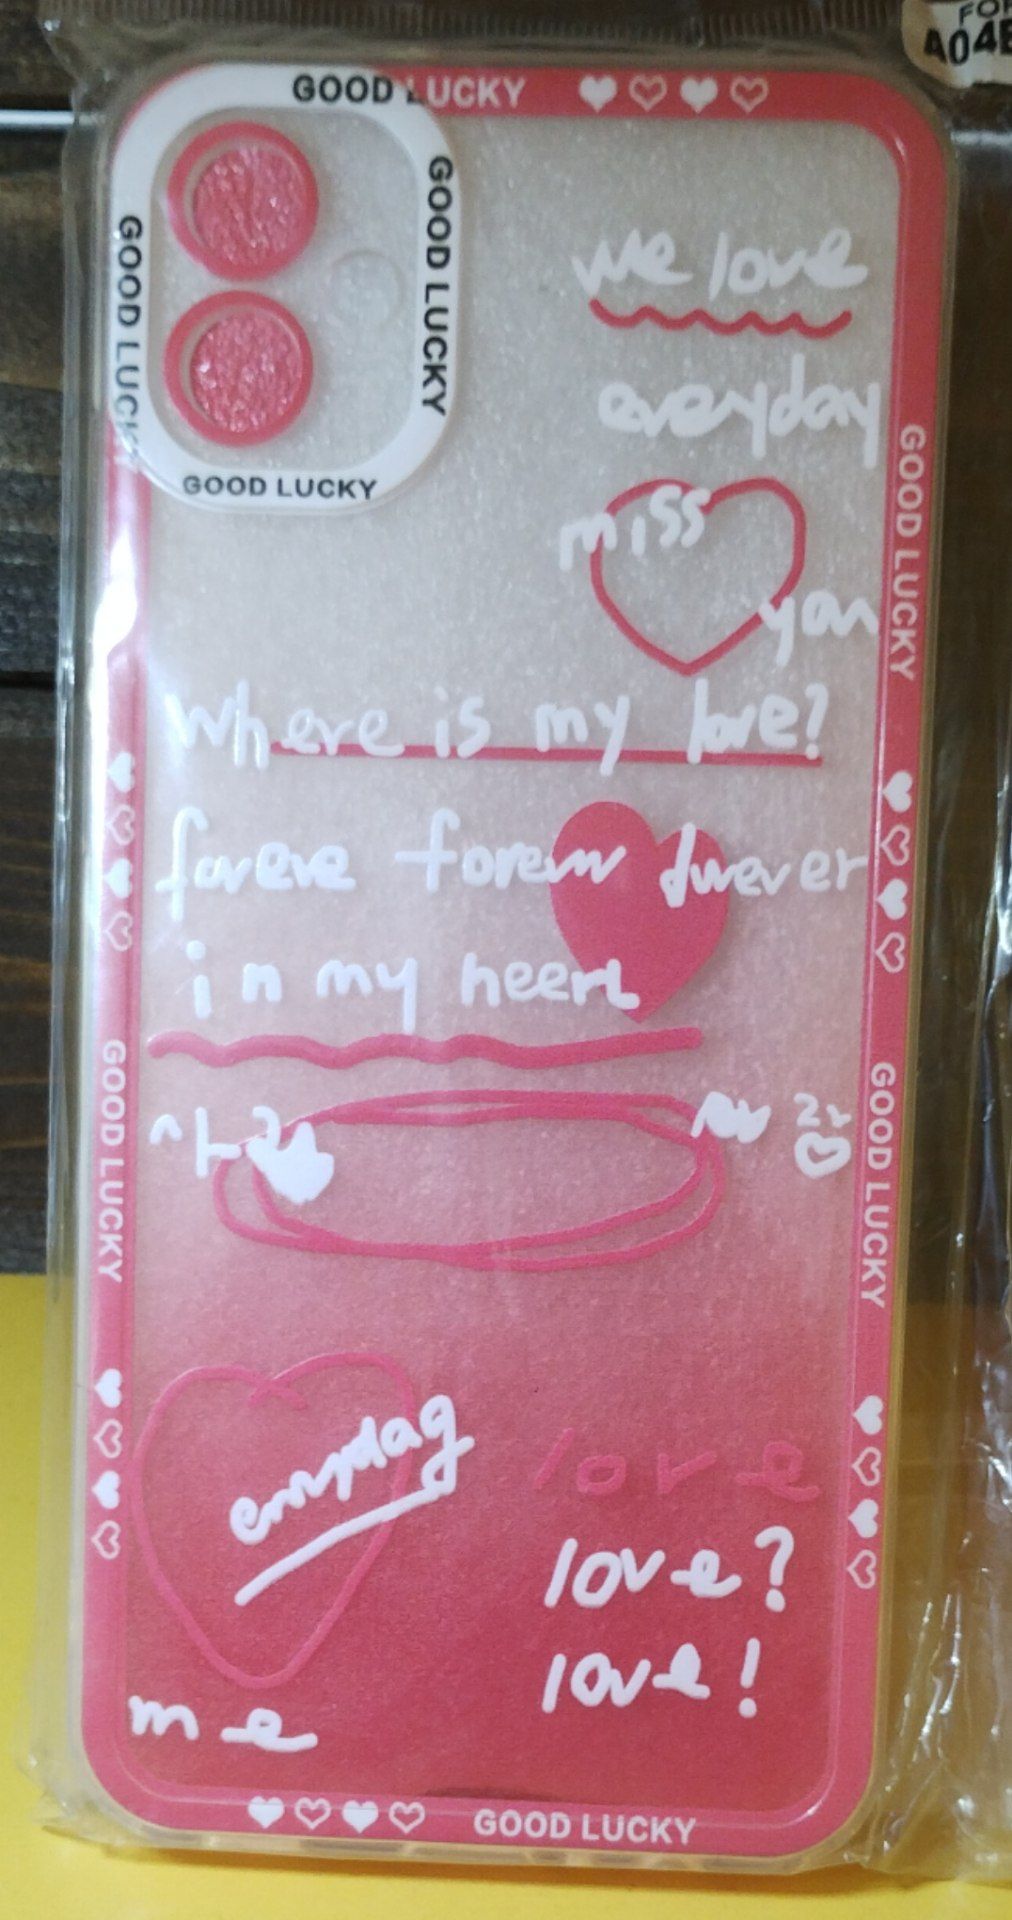 FOR
A04E
GOOD LUCKY
GOOD LUCKY
GOOD LUCK
GOOD LUCKY
we love
everyday
miss
you
GOOD LUCKY
Where is my love?
forever
in my
GOOD LUCKY
GOOD LUCKY
love
love?
love!
me
GOOD LUCKY